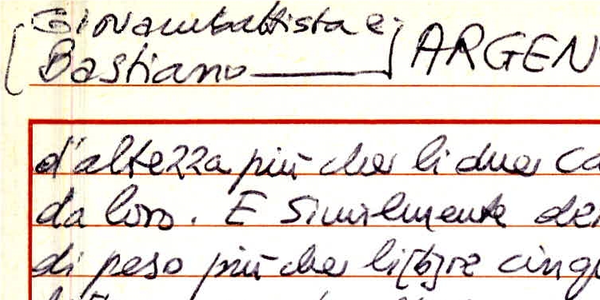 Giovambattista e
Bastiano
ARGEN
d'altezza più che li due
da loro. E similmente
di peso più che li[b]re